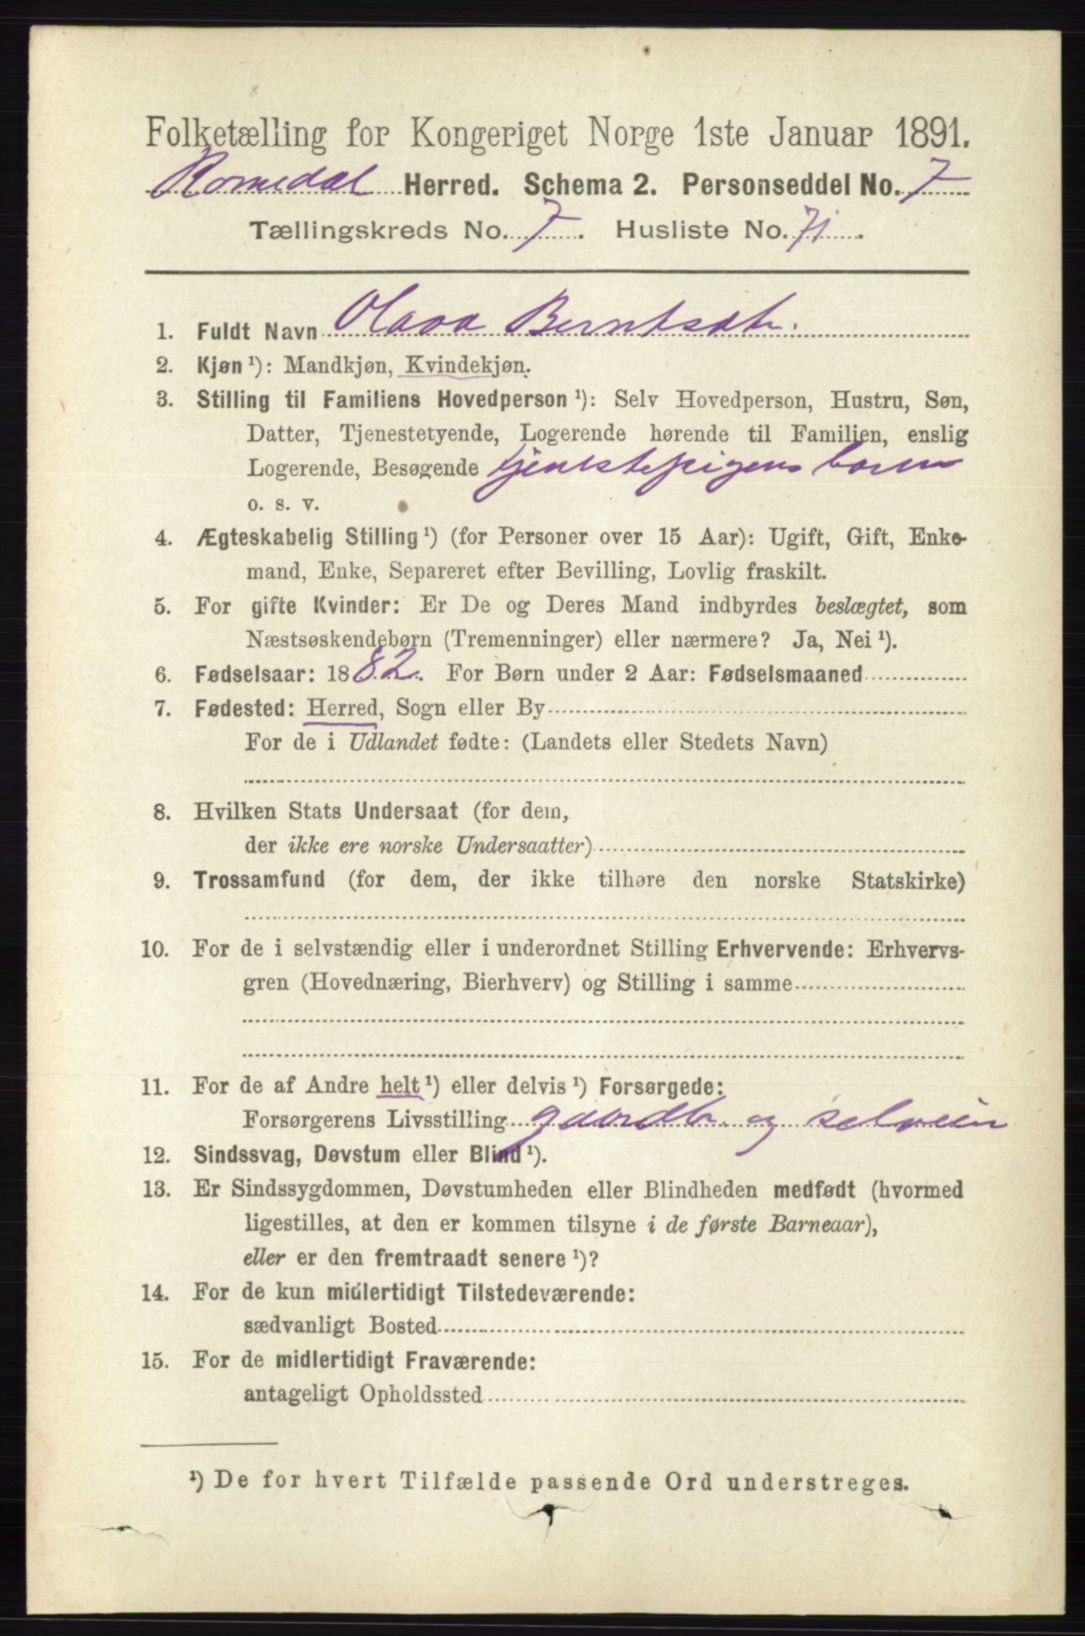 Folketælling for Kongeriget Norge 1ste Januar 1891.
Romedal Herred. Schema 2. Personseddel No. 7
Tællingskreds No. 7. Husliste No. 71.
1. Fuldt Navn Olava Berntsdtr.
2. Kjøn ¹): Mandkjøn, Kvindekjøn.
3. Stilling til Familiens Hovedperson ¹): Selv Hovedperson, Hustru, Søn,
Datter, Tjenestetyende, Logerende hørende til Familien, enslig
Logerende, Besøgende tjenestepigens barn
o. s. v.
4. Ægteskabelig Stilling ¹) (for Personer over 15 Aar): Ugift, Gift, Enke-
mand, Enke, Separeret efter Bevilling, Lovlig fraskilt.
5. For gifte Kvinder: Er De og Deres Mand indbyrdes beslægtet, som
Næstsøskendebørn (Tremenninger) eller nærmere? Ja, Nei ¹).
6. Fødselsaar: 1882. For Børn under 2 Aar: Fødselsmaaned
7. Fødested: Herred, Sogn eller By
For de i Udlandet fødte: (Landets eller Stedets Navn)
8. Hvilken Stats Undersaat (for dem,
der ikke ere norske Undersaatter)
9. Trossamfund (for dem, der ikke tilhøre den norske Statskirke)
10. For de i selvstændig eller i underordnet Stilling Erhvervende: Erhvervs-
gren (Hovednæring, Bierhverv) og Stilling i samme
11. For de af Andre helt ¹) eller delvis ¹) Forsørgede:
Forsørgerens Livsstilling gaardbr. og selveier
12. Sindssvag, Døvstum eller Blind ¹).
13. Er Sindssygdommen, Døvstumheden eller Blindheden medfødt (hvormed
ligestilles, at den er kommen tilsyne i de første Barneaar),
eller er den fremtraadt senere ¹)?
14. For de kun midlertidigt Tilstedeværende:
sædvanligt Bosted
15. For de midlertidigt Fraværende:
antageligt Opholdssted
¹) De for hvert Tilfælde passende Ord understreges.